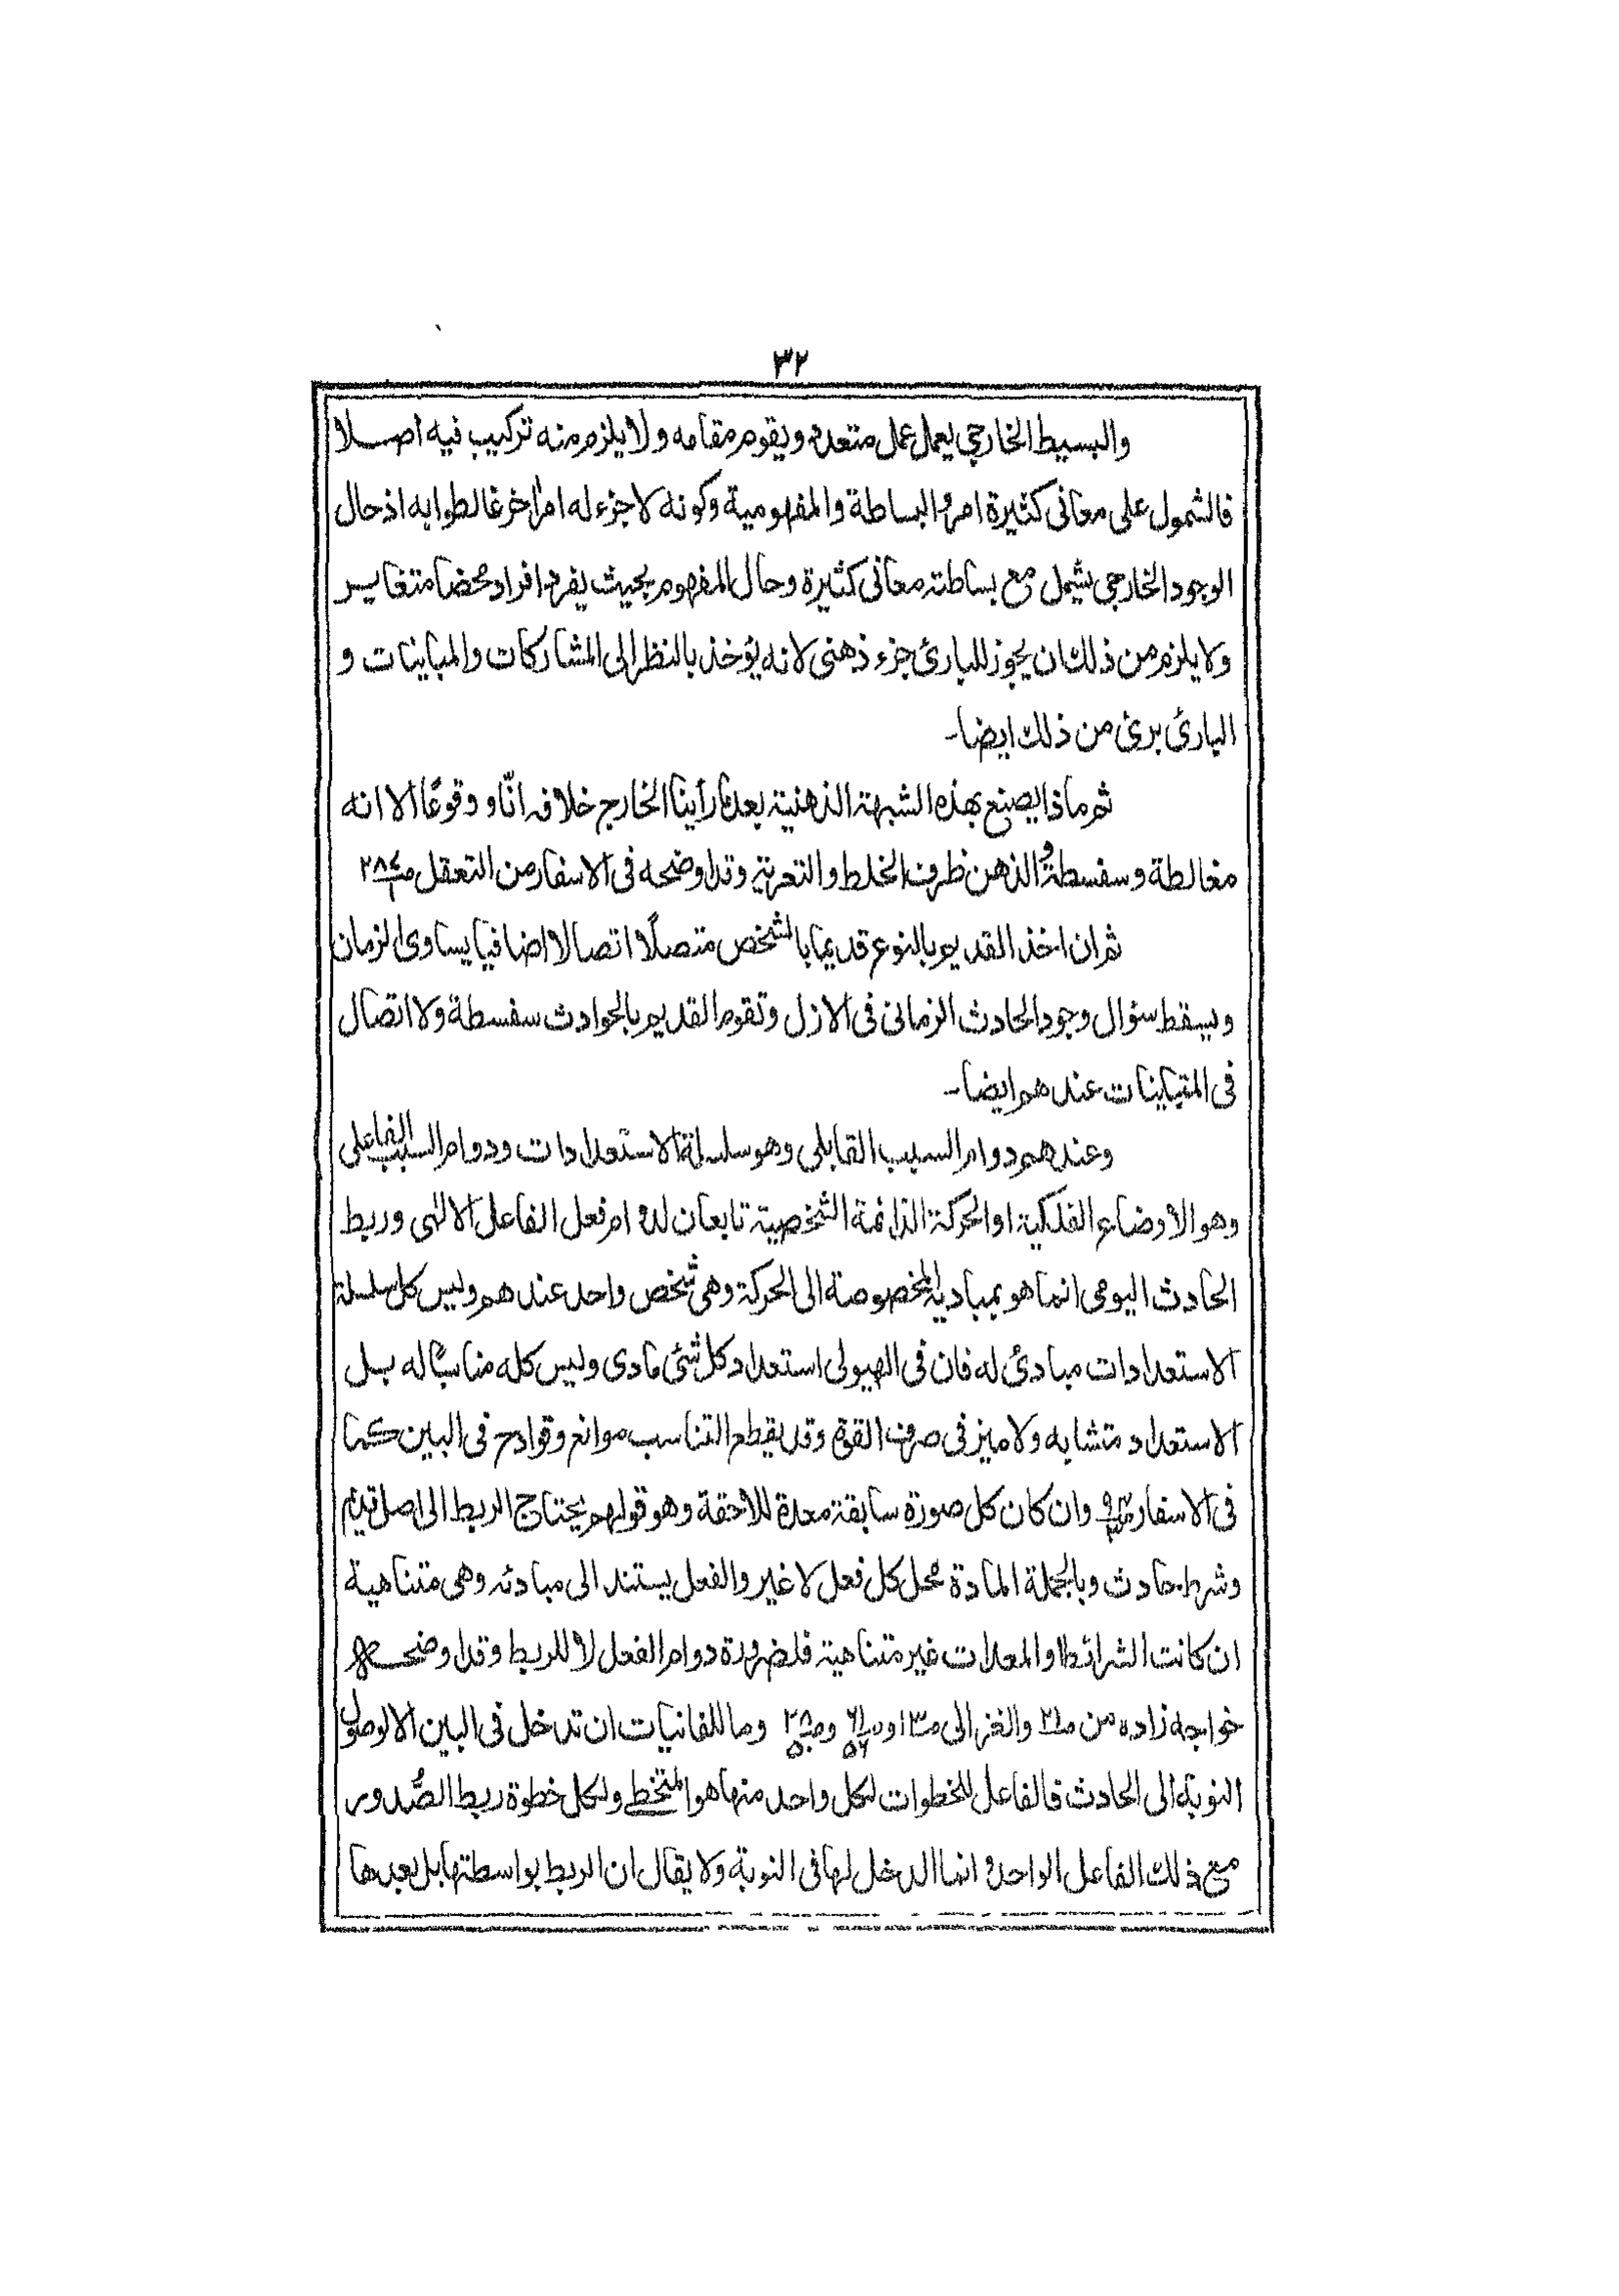 ٣٢
والبسيط الخارجي يعمل عمل متعدد ويقوم مقامه ولا يلزم منه تركيب فيه اصلا
فالشمول على معانى كثيرة امر والبساطة والمفهومية وكونه لا جزء له امرا خر غالطوا به اذ حال
الوجود الخارجى يشمل مع بساطته معانى كثيرة وحال المفهوم بحيث يفرد افراد محضا متغاير
ولا يلزم من ذلك ان يجوز للبارئ جزء ذهنى لانه يؤخذ بالنظر الى المشاركات والمباينات و
البارئ برئ من ذلك ايضا-
ثم ماذا يصنع بهذه الشبهة الذهنية بعد ما رأينا الخارج خلافه انّا و وقوعًا الا انه
مغالطة وسفسطة والذهن ظرف الخلط والتعرية وقد اوضحه فى الاسفار من التعقل
ثم ان اخذ القديم بالنوع قديما بالشخص متصلًا اتصالا اضافيا يساوى الزمان
ويسقط سؤال وجود الحادث الزمانى فى الازل وتقوم القديم بالحوادث سفسطة ولا اتصال
فى المتباينات عندهم ايضا-
وعندهم دوام السبب القابلى وهو سلسلة الاستعدادات ودوام السبب الفاعلى
وهو الاوضاع الفلكية او الحركة الدائمة الشخصية تابعان لدوام فعل الفاعل الالهى وربط
الحادث اليومى انما هو بمباديه المخصوصة الى الحركة وهى شخص واحد عندهم وليس كل سلسلة
الاستعدادات مبادئ له فان فى الهيولى استعداد كل شئ مادى وليس كله مناسبًا له بل
الاستعداد متشابه ولا ميز فى صرف القوة وقد يقطع التناسب موانع وقوادح فى البين كما
فى الاسفار وان كان كل صورة سابقة معدة للاحقة وهو قولهم يحتاج الربط الى اصل قديم
وشرط حادث وبالجملة المادة محل كل فعل لا غير والفعل يستند الى مبادئه وهى متناهية
ان كانت الشرائط او المعدات غير متناهية فلضرورة دوام الفعل لا للربط وقد اوضحه
خواجه زاده من والغزالى وما للفانيات ان تدخل فى البين الا لوصول
النوبة الى الحادث فالفاعل للخطوات لكل واحد منها هو المتخطى ولكل خطوة ربط الصُّدور
مع ذلك الفاعل الواحد وانما الدخل لها فى النوبة ولا يقال ان الربط بواسطتها بل بعدها